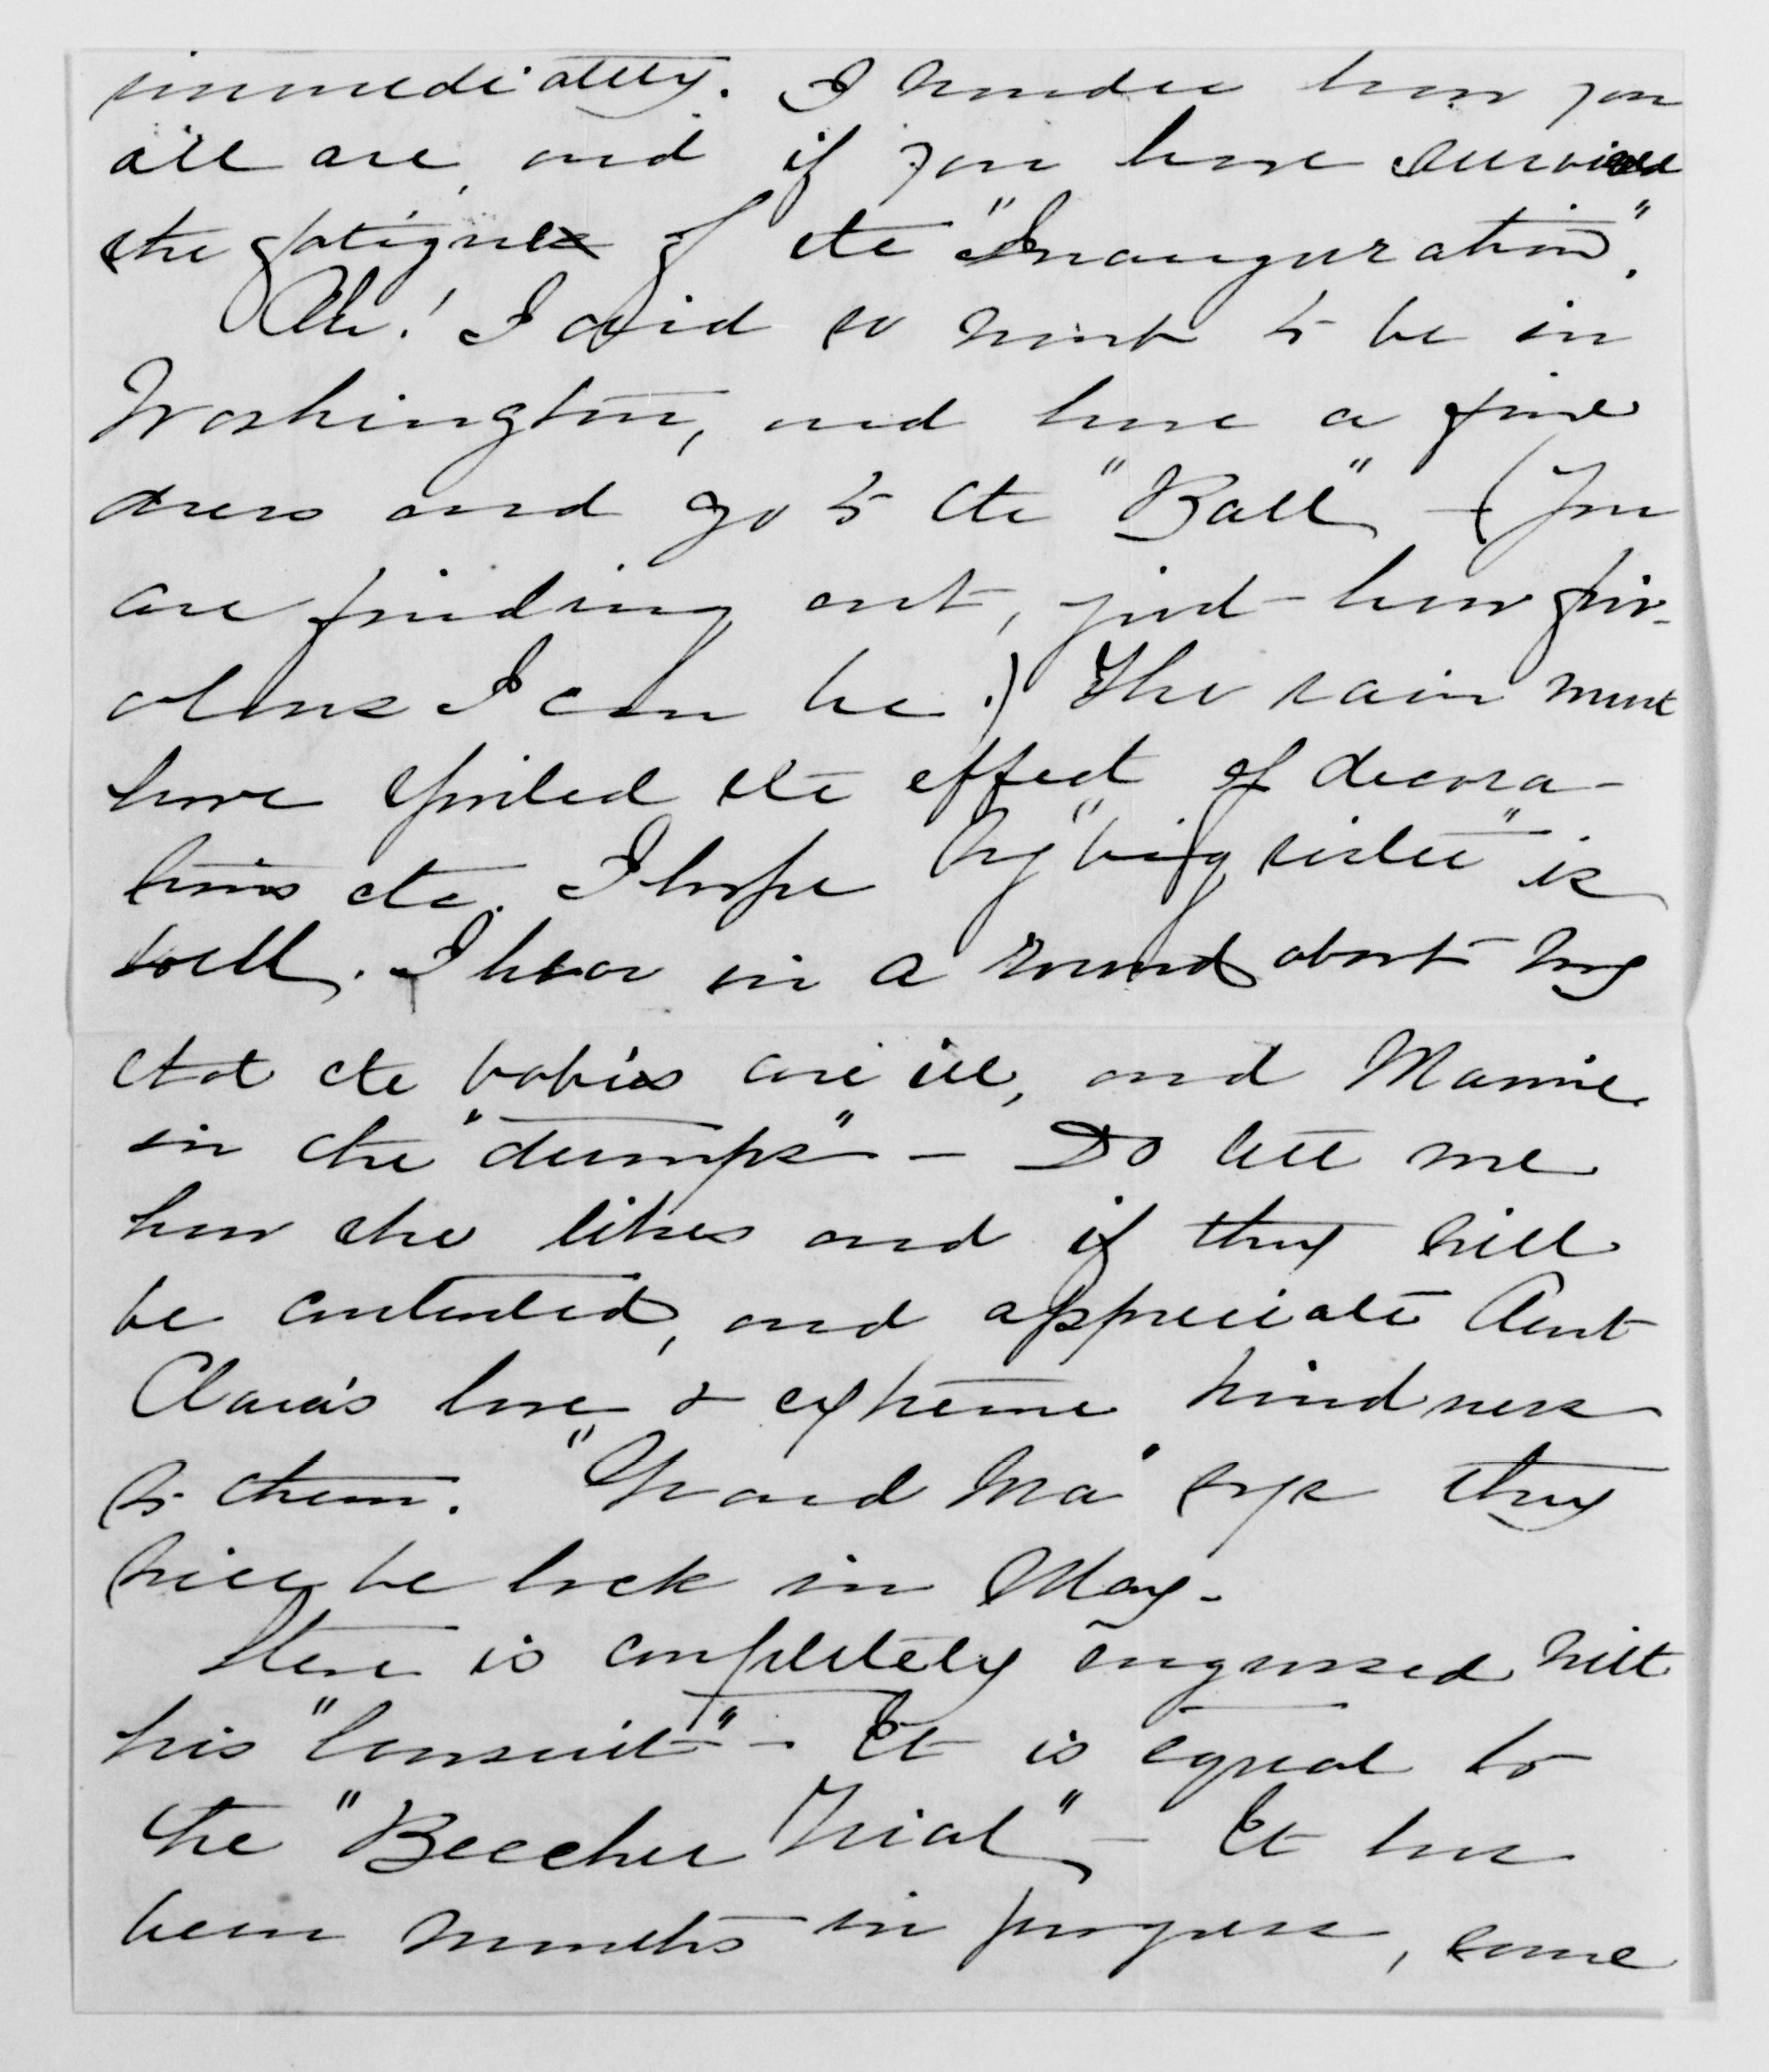 immediately. I wonder how you
all are, and if you have survived
the fatigue of the "Inauguration".
Oh! I did so want to be in
Washington, and have a fine
dress and go to the "Ball" - (You
are finding out, just how friv-
olous I can be.) The rain must
have spoiled the effect of decora-
tions etc. I hope my "big sister" is
well. I hear in a round about way
that the babies are ill, and Mamie
in the "dumps" - Do tell me
how she likes and if they will
be contented, and appreciate Aunt
Clara's love & extreme kindness
to them. "Grand Ma" says they
will be back in May -
Steve is completely engrossed with
his "lawsuit" - It is equal to
the "Beecher Trial" - It has
been months in progress, some